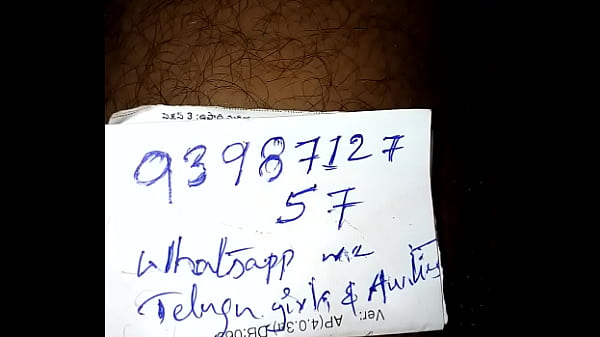 93987127
57
Whatsapp me
Telugu girls & Aunties
Ver: AP(4.0.3